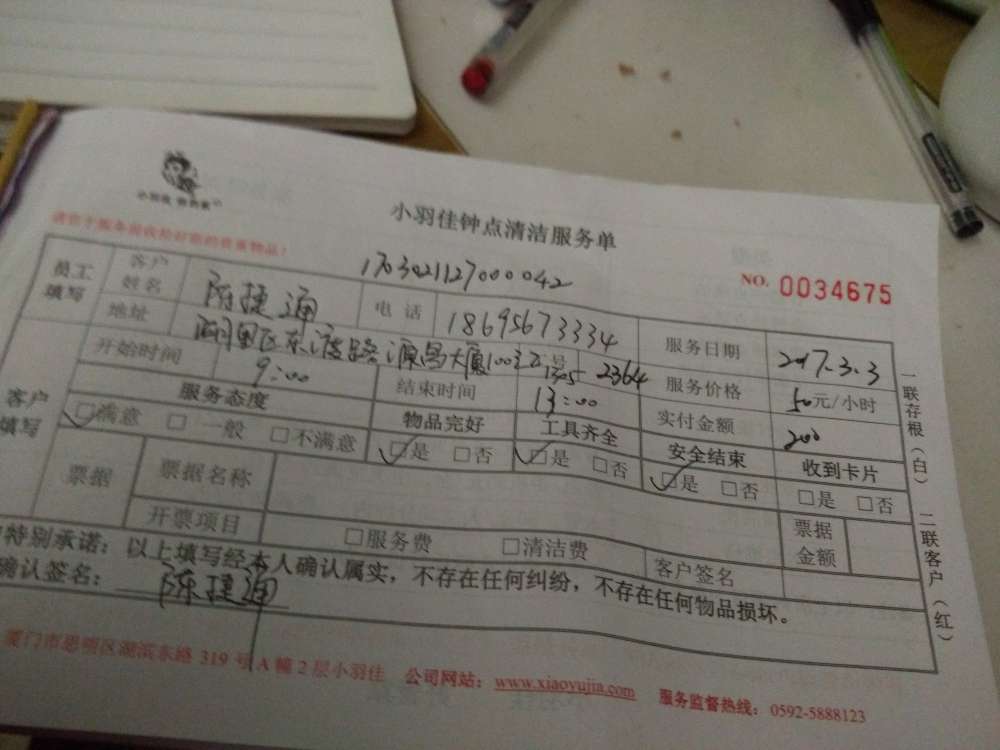 小羽佳钟点清洁服务单
请您于服务前收检好您的贵重物品！
1703021127000042
NO. 0034675
员工填写
客户姓名 陈捷通 电话 18695673334 服务日期 2017.3.3
地址 湖里区东渡路源昌大厦 2364 服务价格 50元/小时
客户填写
开始时间 9:00 结束时间 13:00 实付金额 200
服务态度 物品完好 工具齐全 安全结束 收到卡片
☑满意 □一般 □不满意 ☑是 □否 ☑是 □否 ☑是 □否 □是 □否
票据 票据名称 票据金额
开票项目 □服务费 □清洁费 客户签名
特别承诺：以上填写经本人确认属实，不存在任何纠纷，不存在任何物品损坏。
确认签名：陈捷通
厦门市思明区湖滨东路319号A幢2层小羽佳 公司网站：www.xiaoyujia.com 服务监督热线：0592-5888123
一联存根（白） 二联客户（红）